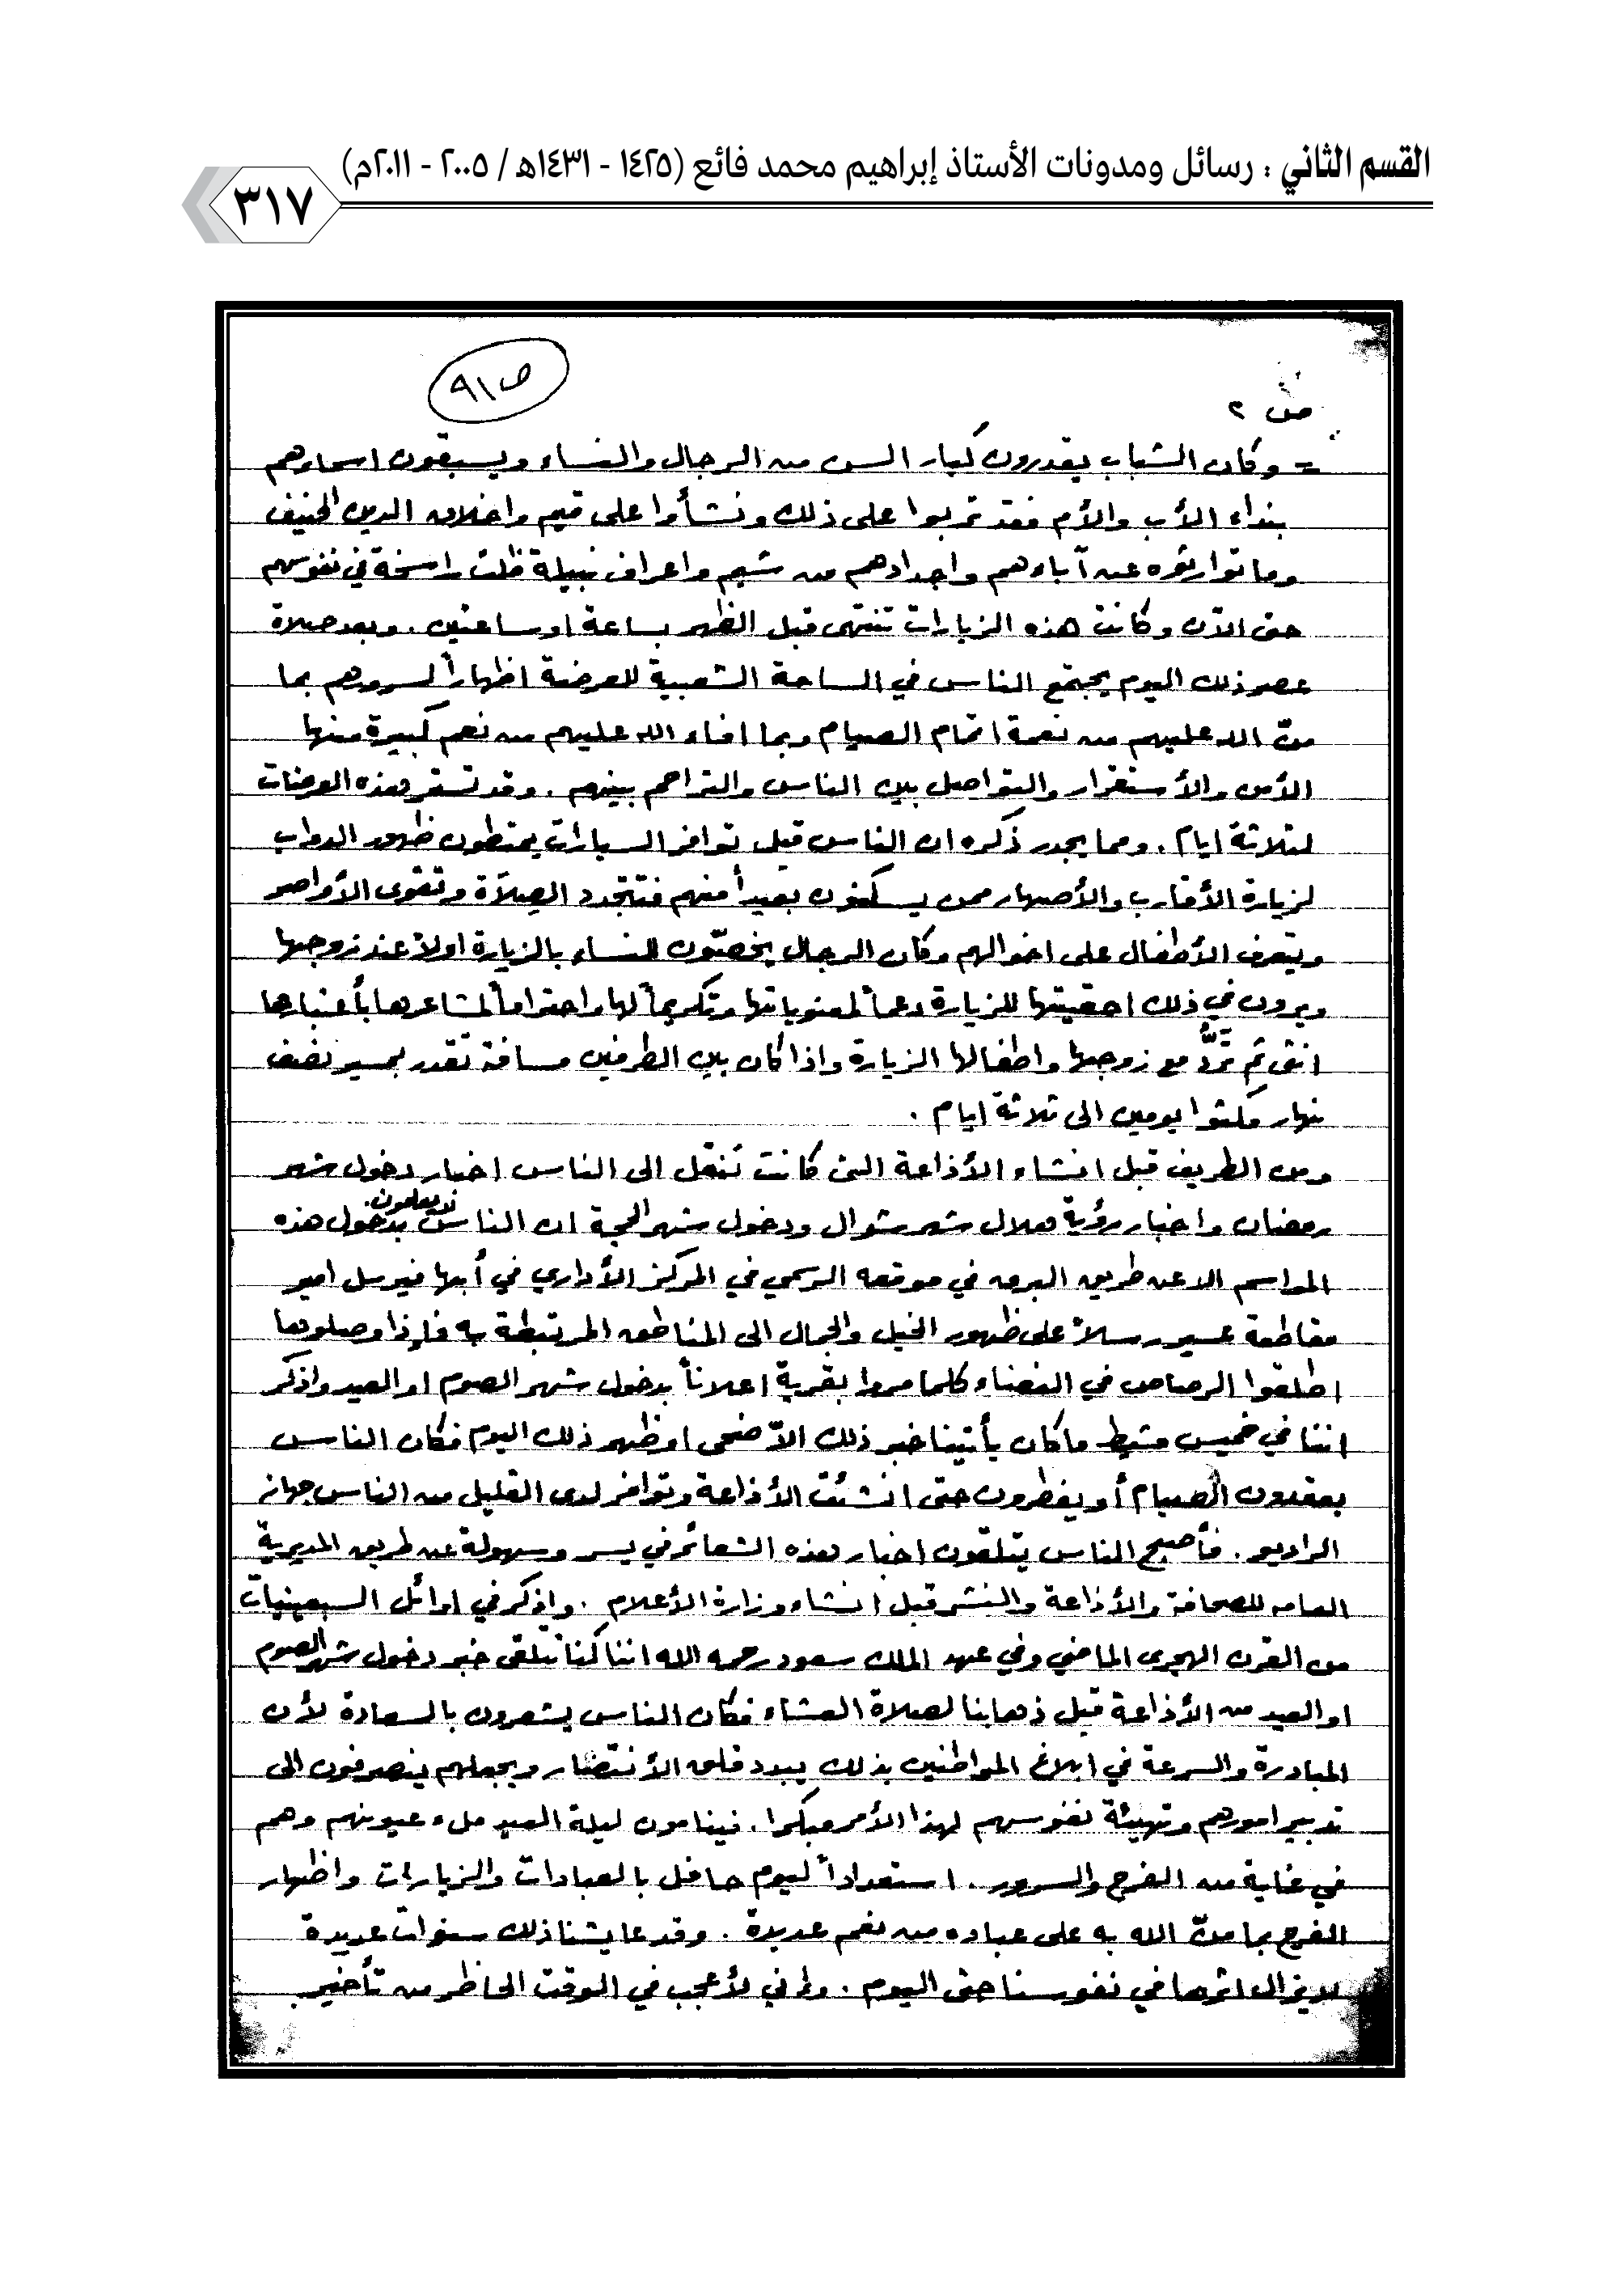 القسم الثاني : رسائل ومدونات الأستاذ إبراهيم محمد فائع (١٤٢٥ - ١٤٣١هـ / ٢٠٠٥ - ٢٠١١م)
٣١٧
ص ٩١
ص ٢
= وكان الشباب يقدرون كبار السن من الرجال والنساء ويسبقون اسماءهم
بنداء الأب والأم فقد تربوا على ذلك ونشأوا على قيم واخلاق الدين الحنيف
وما توارثوه عن آباءهم واجدادهم من شيم واعراف نبيلة ظلت راسخة في نفوسهم
حتى الآن وكانت هذه الزيارات تنتهي قبل الظهر بساعة او ساعتين . وبعد صلاة
عصر ذلك اليوم يجتمع الناس في الساحة الشعبية للعرضة اظهاراً لسرورهم بما
منّ الله عليهم من نعمة اتمام الصيام وبما افاء الله عليهم من نعم كبيرة منها
الأمن والأستقرار والتواصل بين الناس والتراحم بينهم . وقد تستمر هذه العرضات
لثلاثة ايام . ومما يجدر ذكره ان الناس قبل توافر السيارات يمتطون ظهور الدواب
لزيارة الأقارب والأصهار ممن يسكنون بعيداً منهم فتتجدد الصلاة وتقوى الأواصر
ويتعرف الأطفال على اخوالهم وكان الرجال يخصّون النساء بالزيارة اولاً عند زوجها
ويرون في ذلك احقيتها للزيارة دعماً لمعنوياتها وتكريماً لها واحتراماً لمشاعرها بأعتبارها
انثى ثم تردُّ مع زوجها واطفالها الزيارة واذا كان بين الطرفين مسافة تقدر بمسير نصف
نهار مكثوا يومين الى ثلاثة ايام .
ومن الطريف قبل انشاء الأذاعة التي كانت تنقل الى الناس اخبار دخول شهر
رمضان واخبار رؤية هلال شهر شوال ودخول شهر الحجة ان الناس لا يعلمون بدخول هذه
المواسم الا عن طريق البرق في موقعه الرسمي في المركز الأداري في أبها فيرسل امير
مقاطعة عسير رسلاً على ظهور الخيل والجمال الى المناطق المرتبطة به فإذا وصلوها
اطلقوا الرصاص في الفضاء كلما مروا بقرية اعلاناً بدخول شهر الصوم او العيد واذكر
اننا في خميس مشيط ما كان يأتينا خبر ذلك الاّ ضحى او ظهر ذلك اليوم فكان الناس
يعقدون الصيام أو يفطرون حتى انشئت الأذاعة وتوافر لدى القليل من الناس جهاز
الراديو . فأصبح الناس يتلقون اخبار هذه الشعائر في يسر وسهولة عن طريق المديرية
العامه للصحافة والأذاعة والنشر قبل انشاء وزارة الأعلام . واذكر في اوائل السبعينيات
من القرن الهجري الماضي وفي عهد الملك سعود رحمه الله اننا كنا نتلقى خبر دخول شهر الصوم
او العيد من الأذاعة قبل ذهابنا لصلاة العشاء فكان الناس يشعرون بالسعادة لأن
المبادرة والسرعة في ابلاغ المواطنين بذلك يبدد قلق الأنتضار ويجعلهم ينصرفون الى
تدبير امورهم وتهيئة نفوسهم لهذا الأمر مبكرا . فينامون ليلة العيد ملء عيونهم وهم
في غاية من الفرح والسرور . استعداداً ليوم حافل بالعبادات والزيارات واظهار
الفرح بما منّ الله به على عباده من نعم عديدة . وقد عايشنا ذلك سنوات عديدة
لا يزال اثرها في نفوسنا حتى اليوم . وإني لأعجب في الوقت الحاظر من تأخير